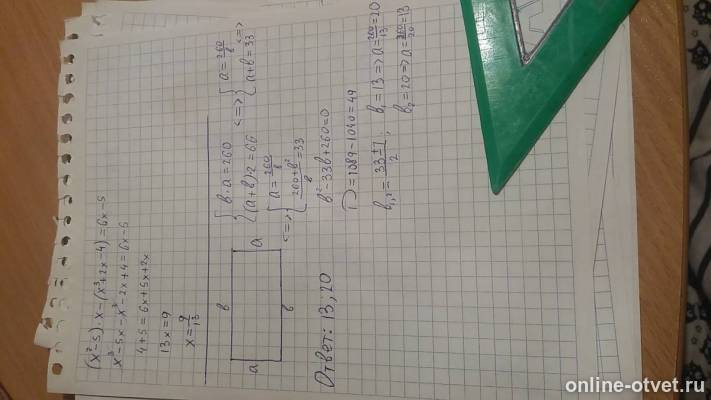 (x²-5)·x-(x³+2x-4)=6x-5
x³-5x-x³-2x+4=6x-5
4+5=6x+5x+2x
13x=9
x=9/13
a
в
в
a
{ в·a=260
{ (a+в)2=66 <=> { a=260/в
{ a+в=33 <=>
<=> { a=260/в
{ (260+в²)/в=33
в²-33в+260=0
D=1089-1040=49
в₁,₂=(33±7)/2; в₁=13=>a=260/13=20
в₂=20=>a=260/20=13
Ответ: 13; 20
online-otvet.ru